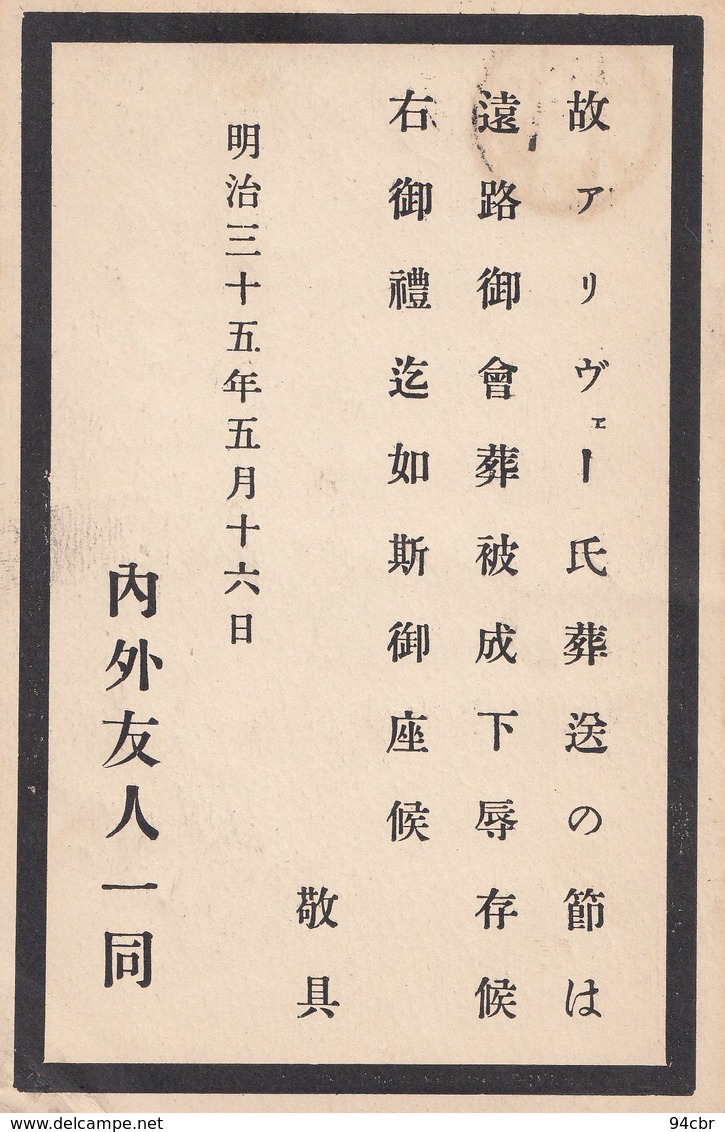 故アリヴェー氏葬送の節は
遠路御會葬被成下辱存候
右御禮迄如斯御座候
敬具
明治三十五年五月十六日
內外友人一同
www.delcampe.net
94cbr